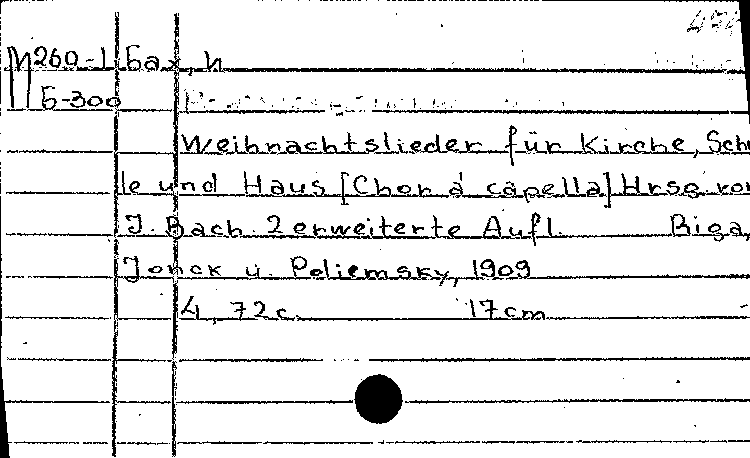 М260-1 Бах, И
Б-300
Weihnachtslieder für Kirche, Schu
le und Haus [Chor á capella] Hrsg. von
J. Bach. 2 erweiterte Aufl. Riga,
Jonck u. Poliewsky, 1909
4, 72 с. 17 cm